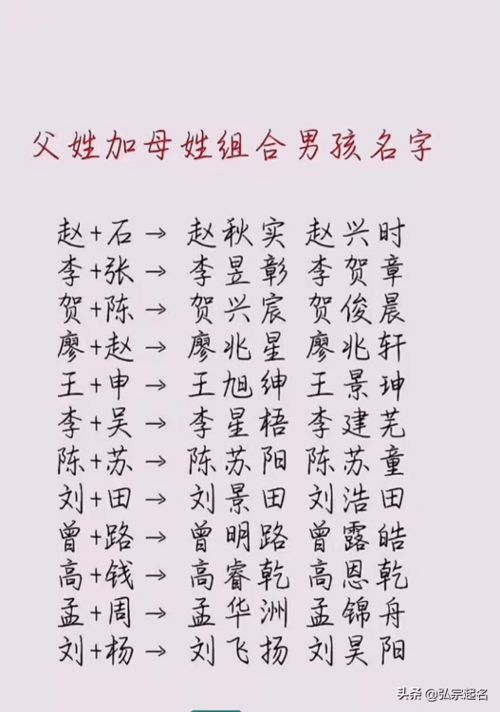 父姓加母姓组合男孩名字
赵+石→ 赵秋实 赵兴时
李+张→ 李昱彰 李贺章
贺+陈→ 贺兴宸 贺俊晨
廖+赵→ 廖兆星 廖兆轩
王+申→ 王旭绅 王景珅
李+吴→ 李星梧 李建芜
陈+苏→ 陈苏阳 陈苏童
刘+田→ 刘景田 刘浩田
曾+路→ 曾明路 曾露皓
高+钱→ 高睿乾 高恩乾
孟+周→ 孟华洲 孟锦舟
刘+杨→ 刘飞扬 刘昊阳
头条 @弘宗起名